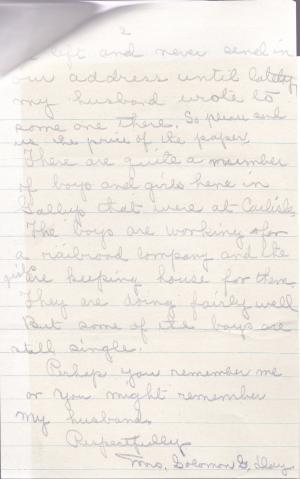 2
left and never send in
our address until lately
my husband wrote to
some one there. So please send
us the price of the paper.
There are quite a number
of boys and girls here in
Gallup that were at Carlisle.
The boys are working for
a railroad company and the
girls are keeping house for them
They are doing fairly well
But some of the boys are
still single.
Perhap you remember me
or you might remember
my husband.
Respectfully
Mrs. Solomon G. Day